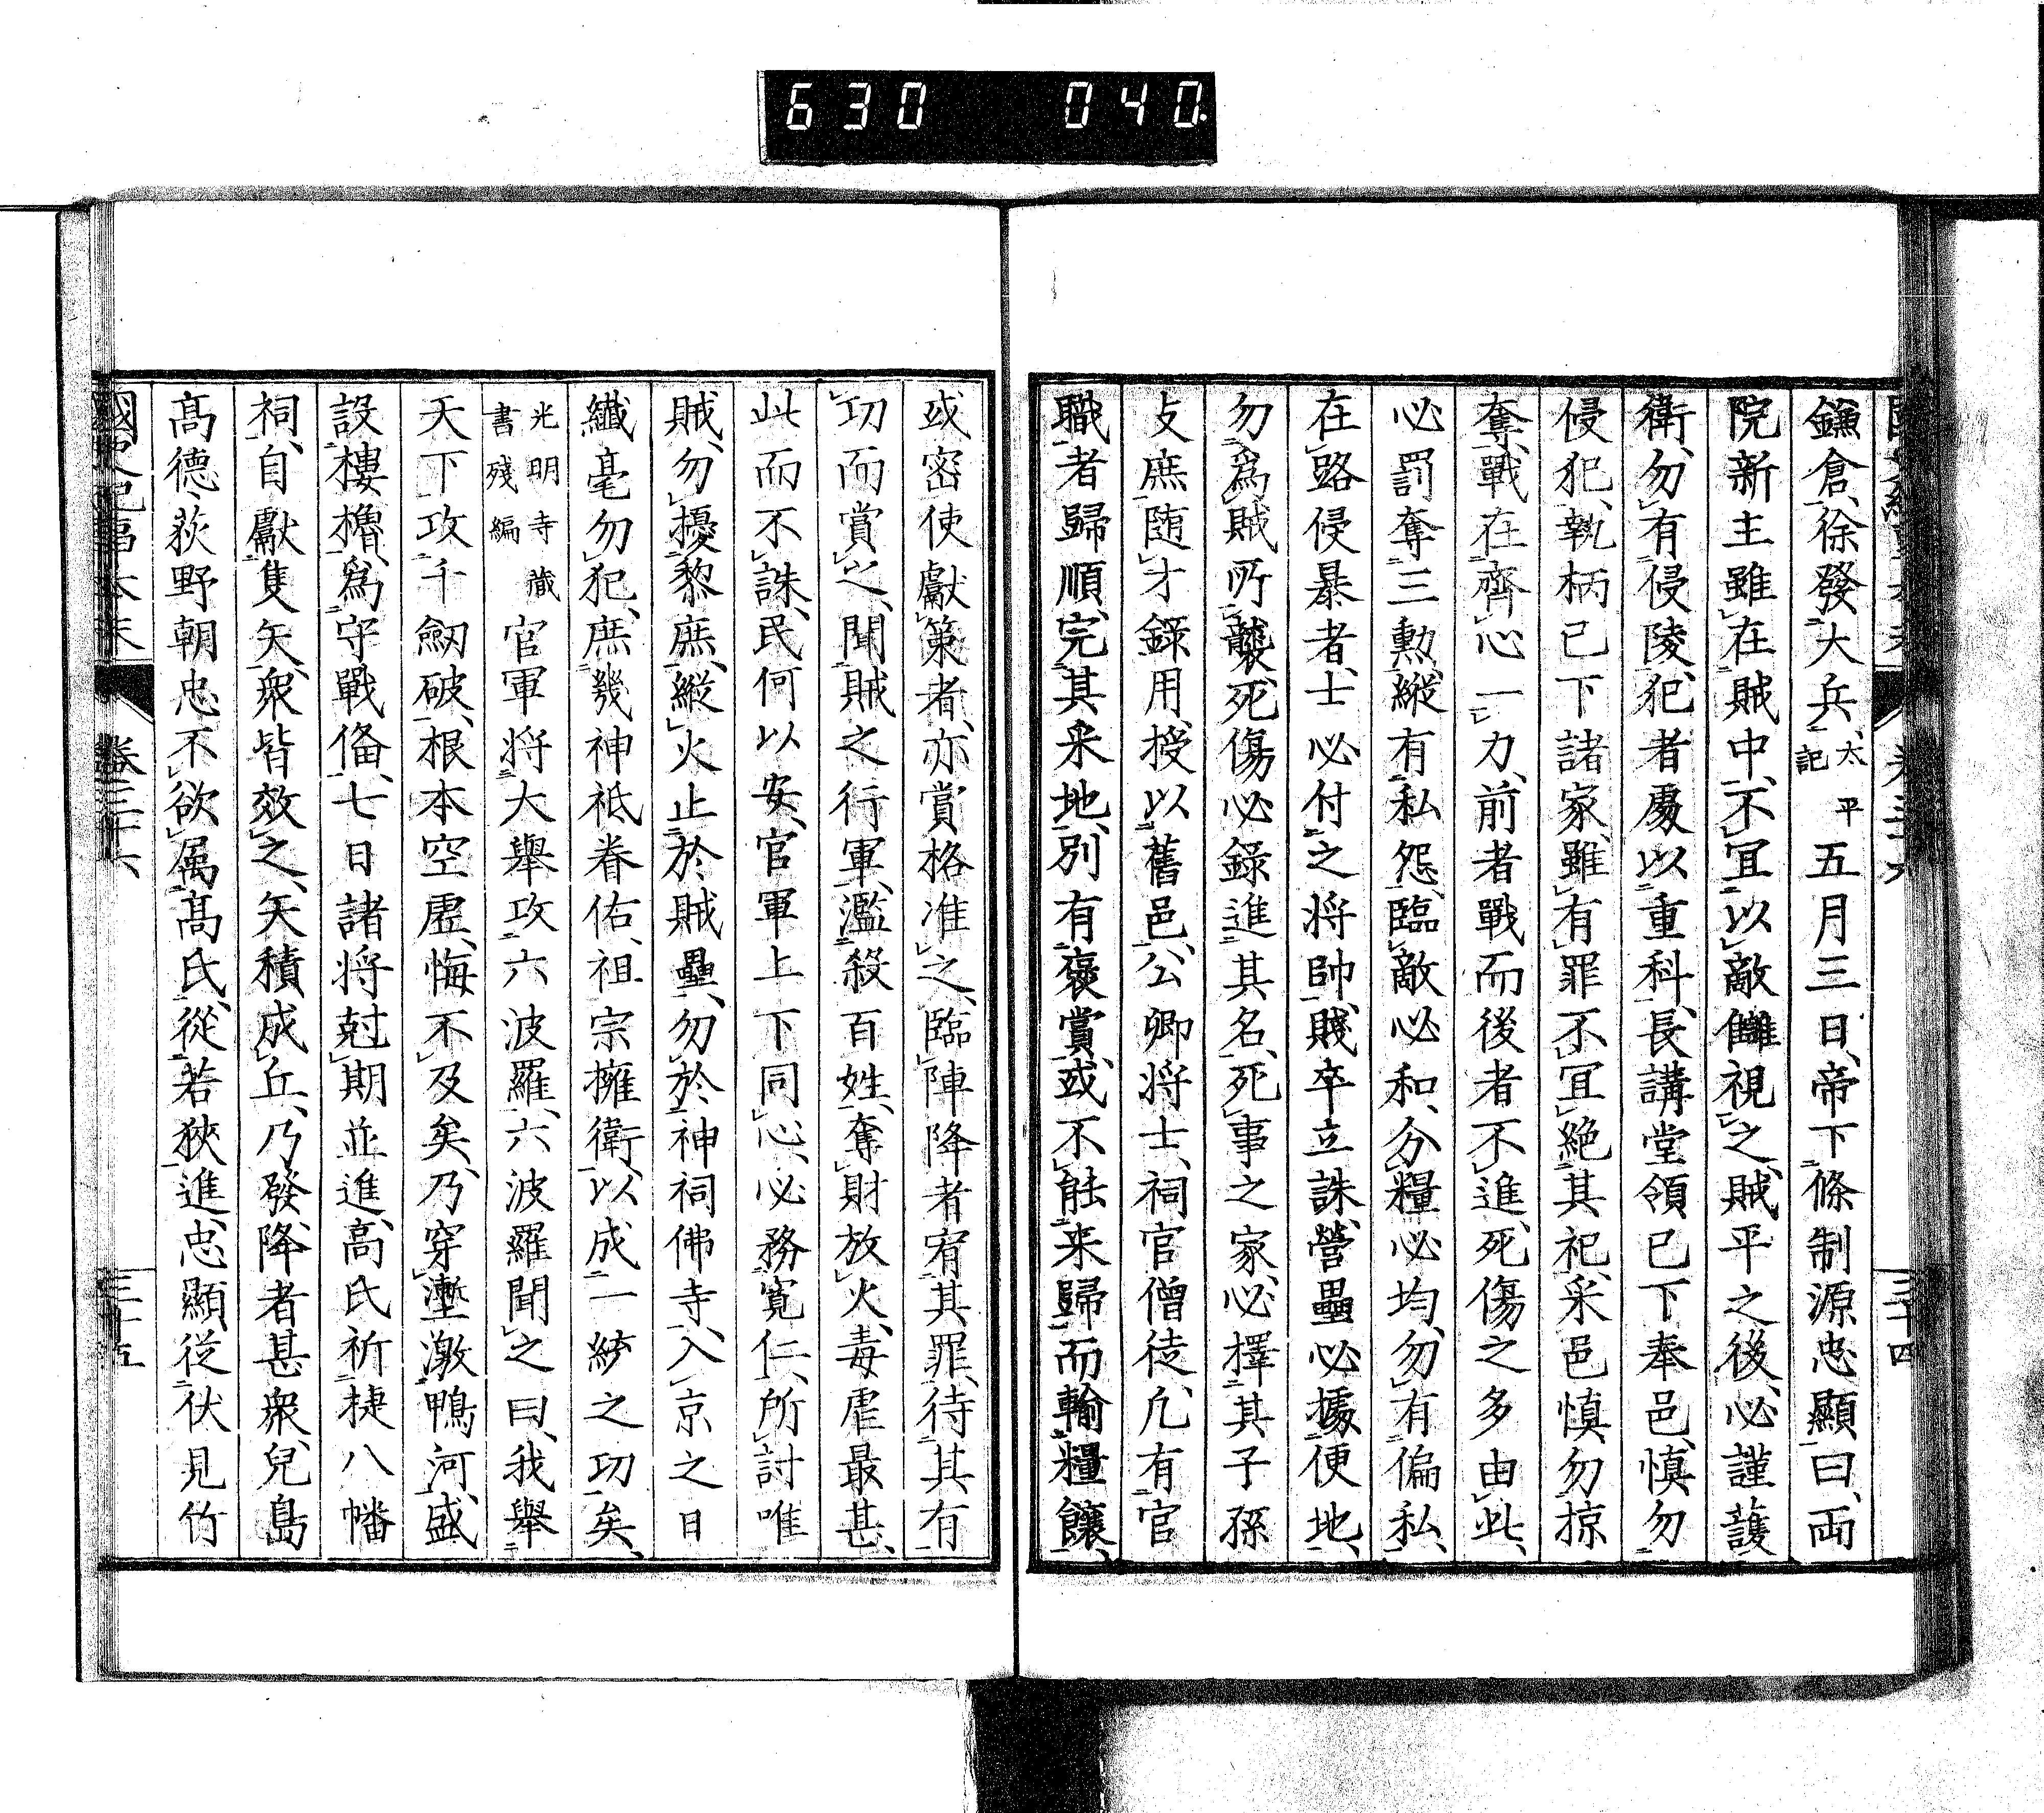 630 040.
鎌倉、徐發大兵、太平記五月三日、帝下條制源忠顯曰、両
院新主雖在賊中、不冝以敵讎視之、賊平之後、必謹護
衛、勿有侵陵、犯者處以重科、長講堂領已下奉邑、愼勿
侵犯、執柄已下諸家、雖有罪不冝絶其祀、采邑慎勿掠
奪、戰在齊心一力、前者戰而後者不進、死傷之多由此、
必罰奪三勲、縱有私怨、臨敵必和、分糧必均、勿有偏私、
在路侵暴者、士必付之將帥、賤卒立誅、營壘必據便地、
勿爲賊所襲、死傷必録進其名、死事之家、必擇其子孫
攴庶随才録用、授以舊邑、公卿將士、祠官僧徒、凢有官
職者歸順、完其釆地、別有褒賞、或不能来歸、而輸糧饟、
或密使獻策者、亦賞格准之、臨陣降者宥其罪、待其有
功而賞之、聞賊之行軍、濫殺百姓、奪財放火、毒虐最甚、
此而不誅、民何以安、官軍上下同心、必務寛仁、所討唯
賊、勿擾黎庶、縱火止於賊壘、勿於神祠佛寺、入京之日
纖毫勿犯、庶幾神祗眷佑、祖宗擁衛、以成一統之功矣、
光明寺蔵書殘編官軍将大舉攻六波羅、六波羅聞之曰、我舉
天下攻千劒破、根本空虚、悔不及矣、乃穿塹激鴨河、盛
設樓櫓、爲守戰俻、七日諸将尅期並進、高氏祈捷八幡
祠、自獻隻矢、衆皆效之、矢積成丘、乃發、降者甚衆、兒島
髙德、荻野朝忠不欲属髙氏、從若狹進、忠顯從伏見竹
國史紀事本末 卷三十六 三十五